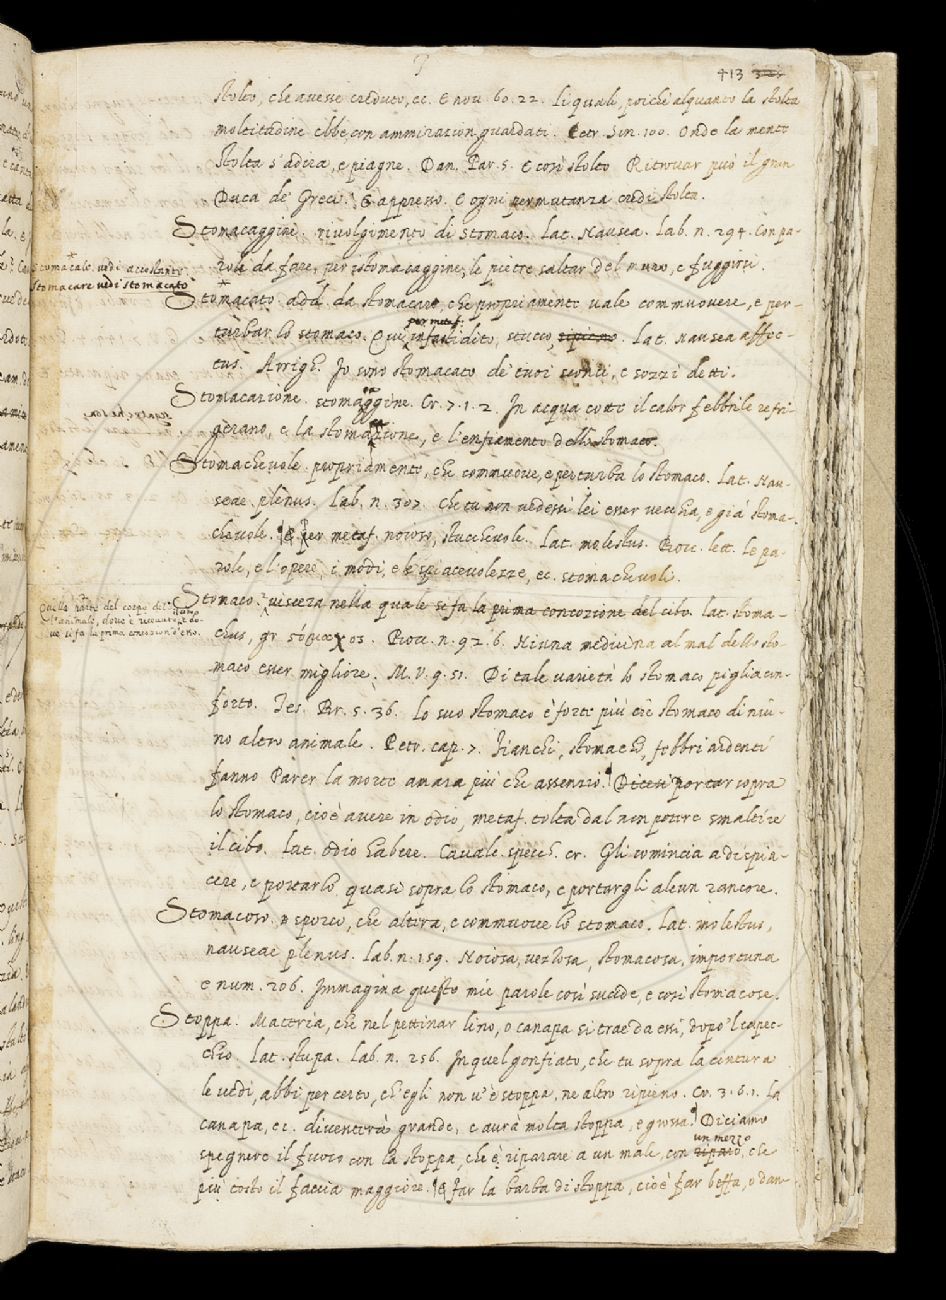 413
stolto, che avesse creduto, ec. E nov. 60. 22. Li quali, poichè alquanto la stolta
moltitudine ebbe con ammirazion guardati. Petr. Son. 100. Onde la mente
stolta s'adira, e piagne. Dan. Par. 5. E così stolto Ritrovar può il gran
Duca de' Greci. E appresso. E ogni permutanza credi stolta.
Stomacaggine. rivolgimento di stomaco. Lat. Nausea. Lab. n. 294. Con pa-
role da fare, per istomacaggine, le pietre saltar del muro, e fuggirsi.
stomacale. vedi accostante
stomacare vedi stomacato
Stomacato. add. da stomacare, che propriamente vale commuovere, e per-
turbar lo stomaco. Qui per metaf. infastidito, stucco, ripieno. Lat. Nausea affec-
tus. Arrigh. Io sono stomacato de' tuoi sconci, e sozzi detti.
Stomacazione. stomacaggine. Cr. 7. 1. 2. In acqua cotto il calor febbrile refri-
gerano, e la stomacazione, e l'enfiamento dello stomaco.
Stomachevole. propriamente, che commuove, e perturba lo stomaco. Lat. Nau-
seae plenus. Lab. n. 307. Che tu non vedessi lei esser vecchia, e già stoma-
chevole. E per metaf. noioso, stucchevole. Lat. molestus. Bocc. lett. Le pa-
role, e l'opere, i modi, e le spiacevolezze, ec. stomachevoli.
Quella parte del corpo dell'
animale, dove è ricevuto il cibo, e do-
ve si fa la prima concozion d'esso.
Stomaco. viscera nella quale si fa la prima concozione del cibo. Lat. stoma-
chus, gr. στόμαχος. Bocc. n. 92. 6. Niuna medicina al mal dello sto-
maco esser migliore. M. V. 9. 51. Di tale varietà lo stomaco piglia con-
forto. Tes. Br. 5. 36. Lo suo stomaco è forte più che stomaco di niu-
no altro animale. Petr. cap. 7. Fianchi, stomachi, febbri ardenti
fanno Parer la morte amara più che assenzio. Dicesi portar sopra
lo stomaco, cioè avere in odio, metaf. tolta dal non potere smaltire
il cibo. Lat. Odio habere. Cavalc. Spech. cr. Gli comincia a dispia-
cere, e portarlo quasi sopra lo stomaco, e portargli alcun rancore.
Stomacoso. sporco, che altera, e commuove lo stomaco. Lat. molestus,
nauseae plenus. Lab. n. 159. Noiosa, vezzosa, stomacosa, importuna
e num. 206. Immagina queste mie parole così sucide, e così stomacose.
Stoppa. Materia, che nel pettinar lino, o canapa si trae da essi, dopo 'l capec-
chio. Lat. stupa. Lab. n. 256. In quel gonfiato, che tu sopra la cintura
le vedi, abbi per certo, ch'egli non v'è stoppa, ne altro ripieno. Cr. 3. 6. 1. La
canapa, ec. diventerà grande, e avrà molta stoppa, e grossa. Diciamo
spegnere il fuoco con la stoppa, che è riparare a un male, con un mezzo, che
più tosto il faccia maggiore. E far la barba di stoppa, cioè far beffa, o dan-